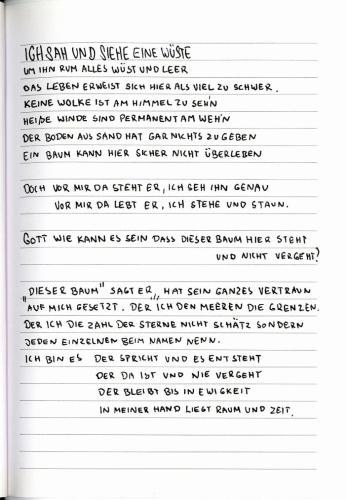 ICH SAH UND SIEHE EINE WÜSTE
UM IHN RUM ALLES WÜST UND LEER
DAS LEBEN ERWEIST SICH HIER ALS VIEL ZU SCHWER.
KEINE WOLKE IST AM HIMMEL ZU SEH'N
HEIßE WINDE SIND PERMANENT AM WEH'N
DER BODEN AUS SAND HAT GAR NICHTS ZU GEBEN
EIN BAUM KANN HIER SICHER NICHT ÜBERLEBEN
DOCH VOR MIR DA STEHT ER, ICH SEH IHN GENAU
VOR MIR DA LEBT ER, ICH STEHE UND STAUN.
GOTT WIE KANN ES SEIN DASS DIESER BAUM HIER STEHT
UND NICHT VERGEHT?
"DIESER BAUM" SAGT ER, "HAT SEIN GANZES VERTRAUN
AUF MICH GESETZT. DER ICH DEN MEEREN DIE GRENZEN.
DER ICH DIE ZAHL DER STERNE NICHT SCHÄTZ SONDERN
JEDEN EINZELNEN BEIM NAMEN NENN.
ICH BIN ES DER SPRICHT UND ES ENTSTEHT
DER DA IST UND NIE VERGEHT
DER BLEIBT BIS IN EWIGKEIT
IN MEINER HAND LIEGT RAUM UND ZEIT.